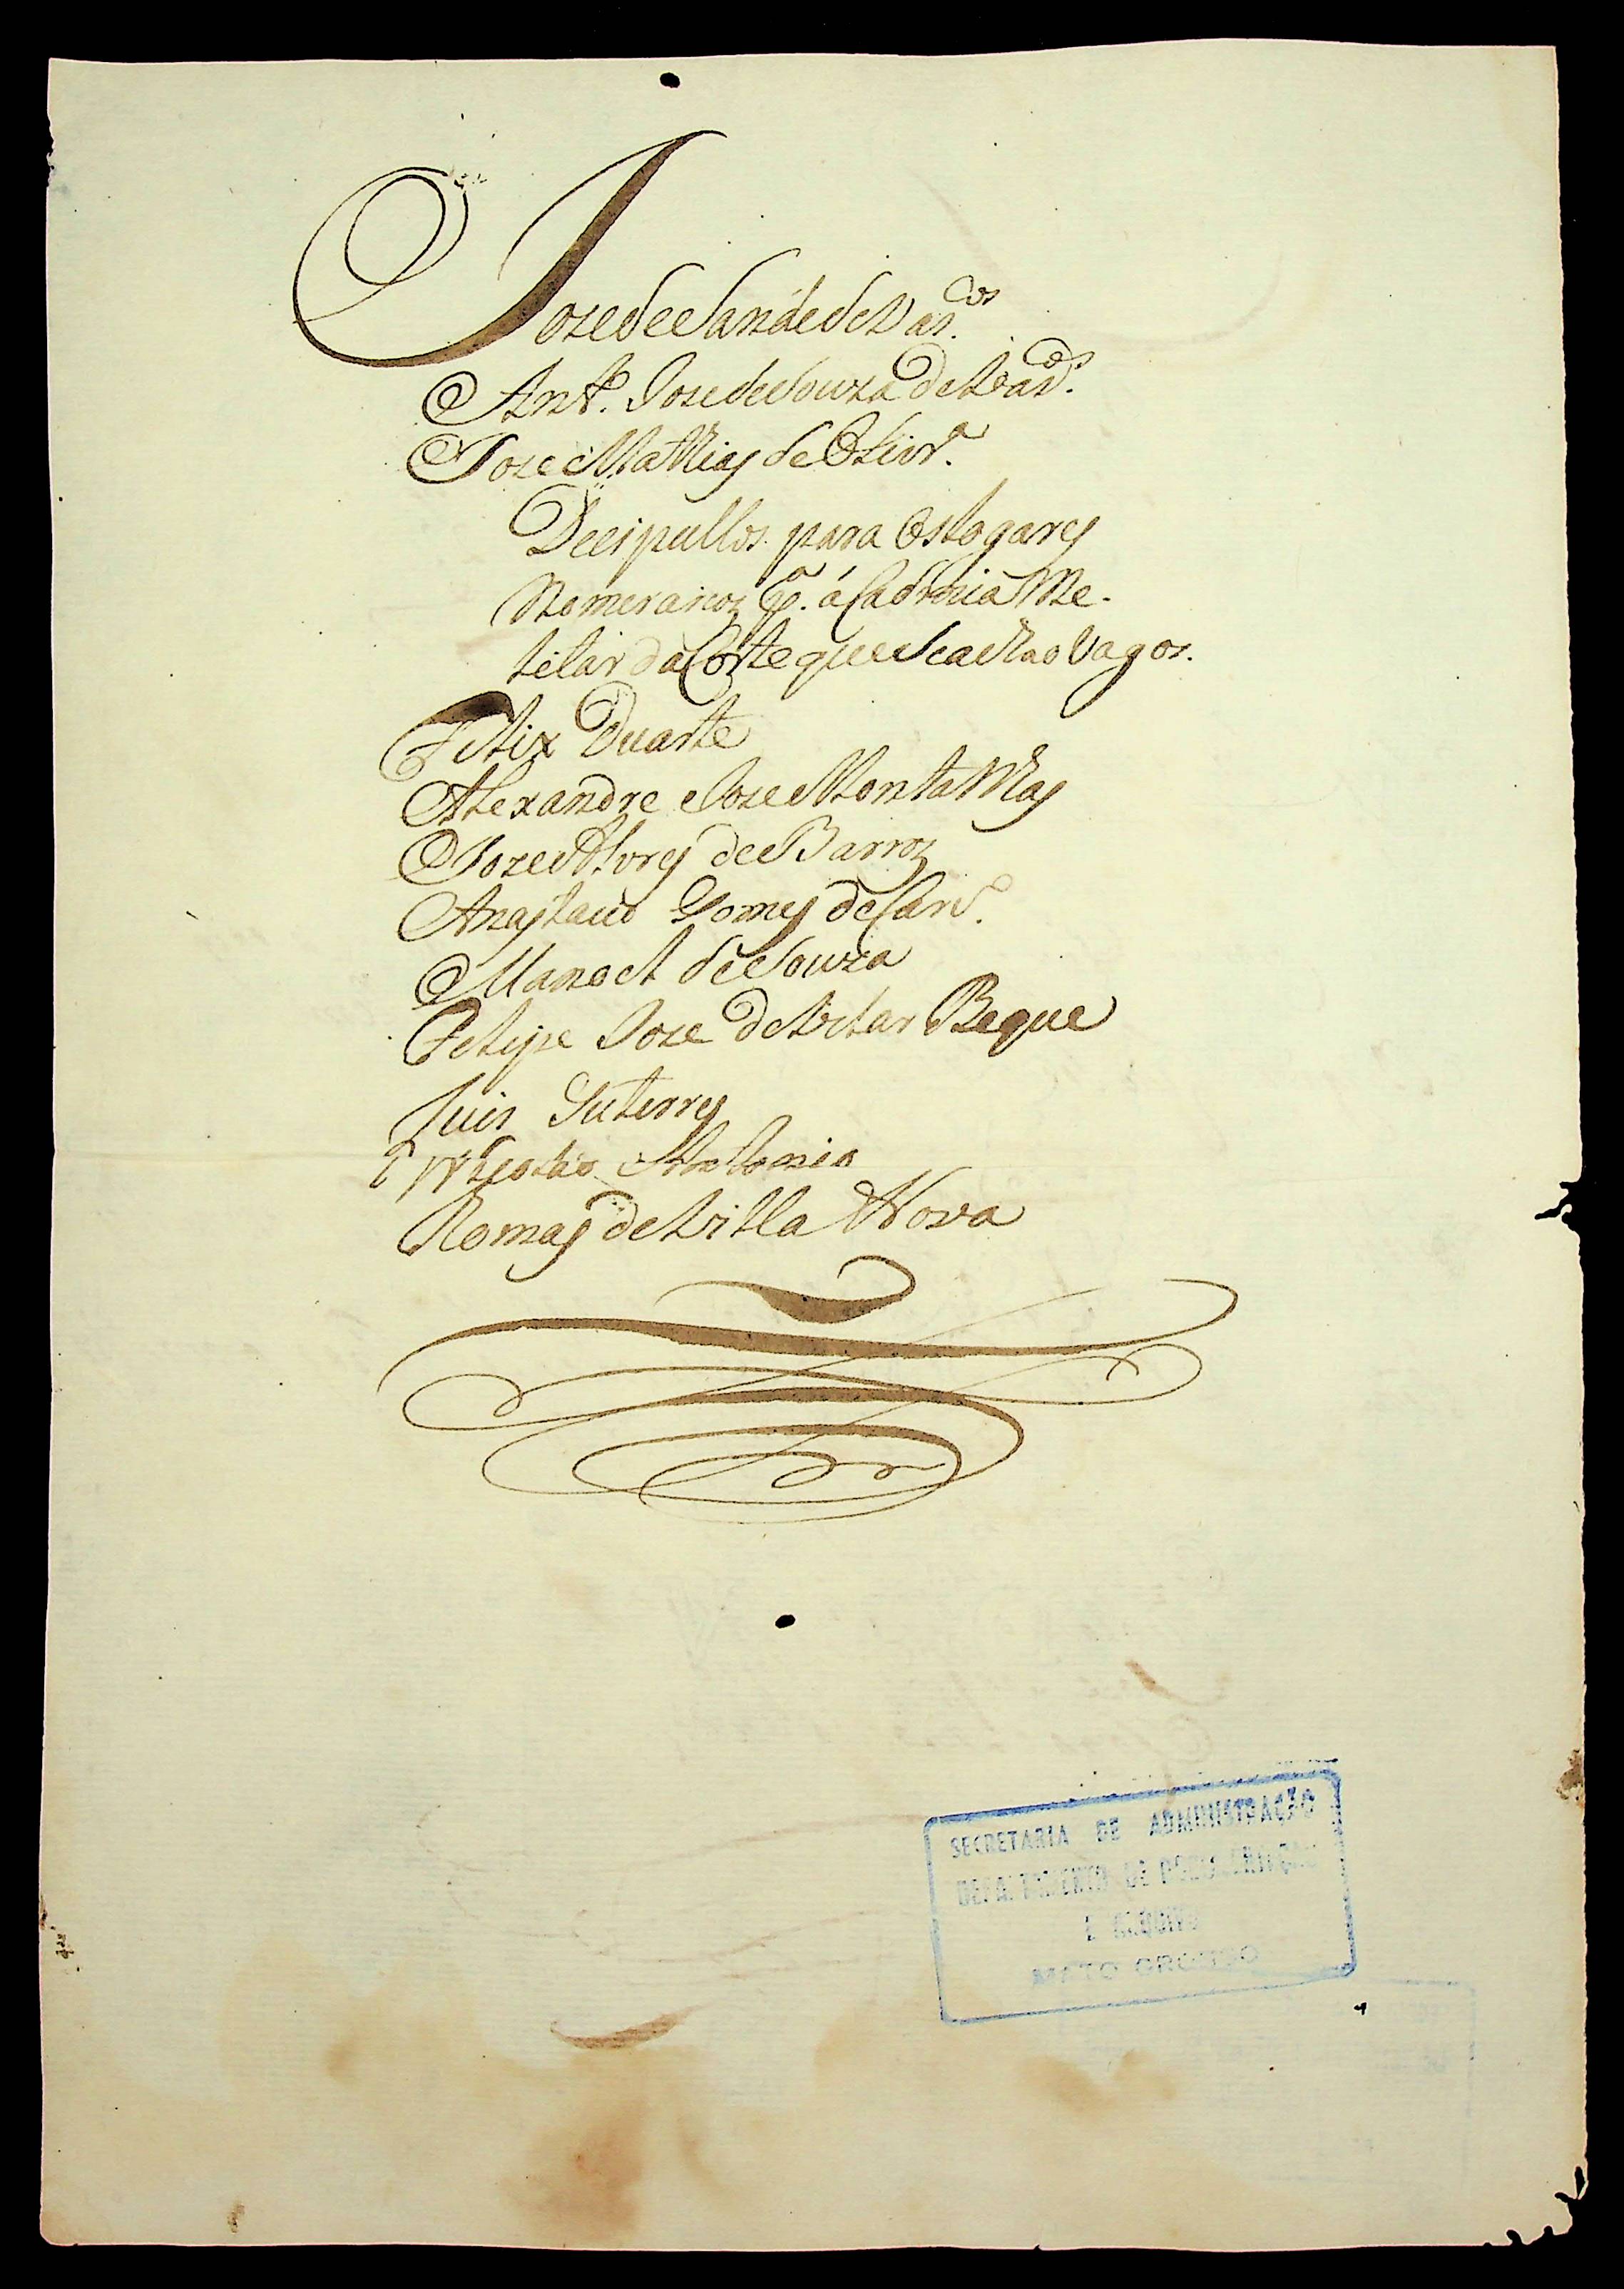 Joze de Sande de Vas.cos
Ant.o Joze de Souza de Vas.cos
Joze Mathias de Olivr.a
Decipullos para os logares
Nomerarios p.a á Cadimia Me-
litar da Corte que se achão Vagos.
Felix Duarte
Alexandre Joze Montanhas
Joze Alvres de Barros
Anastacio Gomes de Carv.o
Manoel de Souza
Felipe Joze de Vilar Beque
Luis Guterres
Antonio
Romas de Villa Nova
SECRETARIA DE ADMINISTRAÇÃO
DEPARTAMENTO DE DOCUMENTAÇÃO
E ARQUIVO
MATO GROSSO